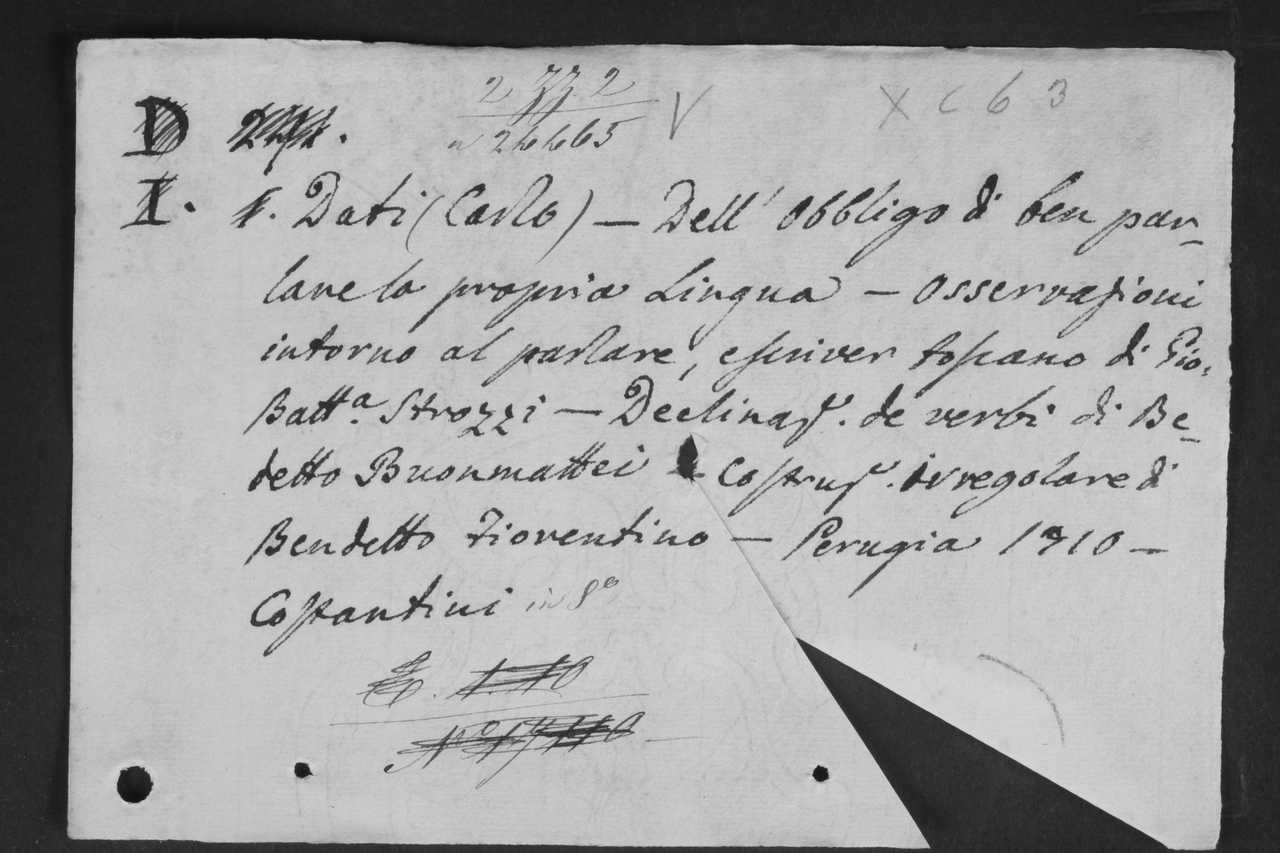 2 77. 2
n 26665 V X C 6 3
D
I. 1. Dati (Carlo) – Dell' obbligo di ben par-
lare la propria Lingua – Osservazioni
intorno al parlare, escriver toscano di Gio.
Battᵃ. Strozzi – Declinaz. de verbi di Be-
detto Buonmattei – Costruz. irregolare di
Bendetto Fiorentino – Perugia 1710 –
Costantini in 8º